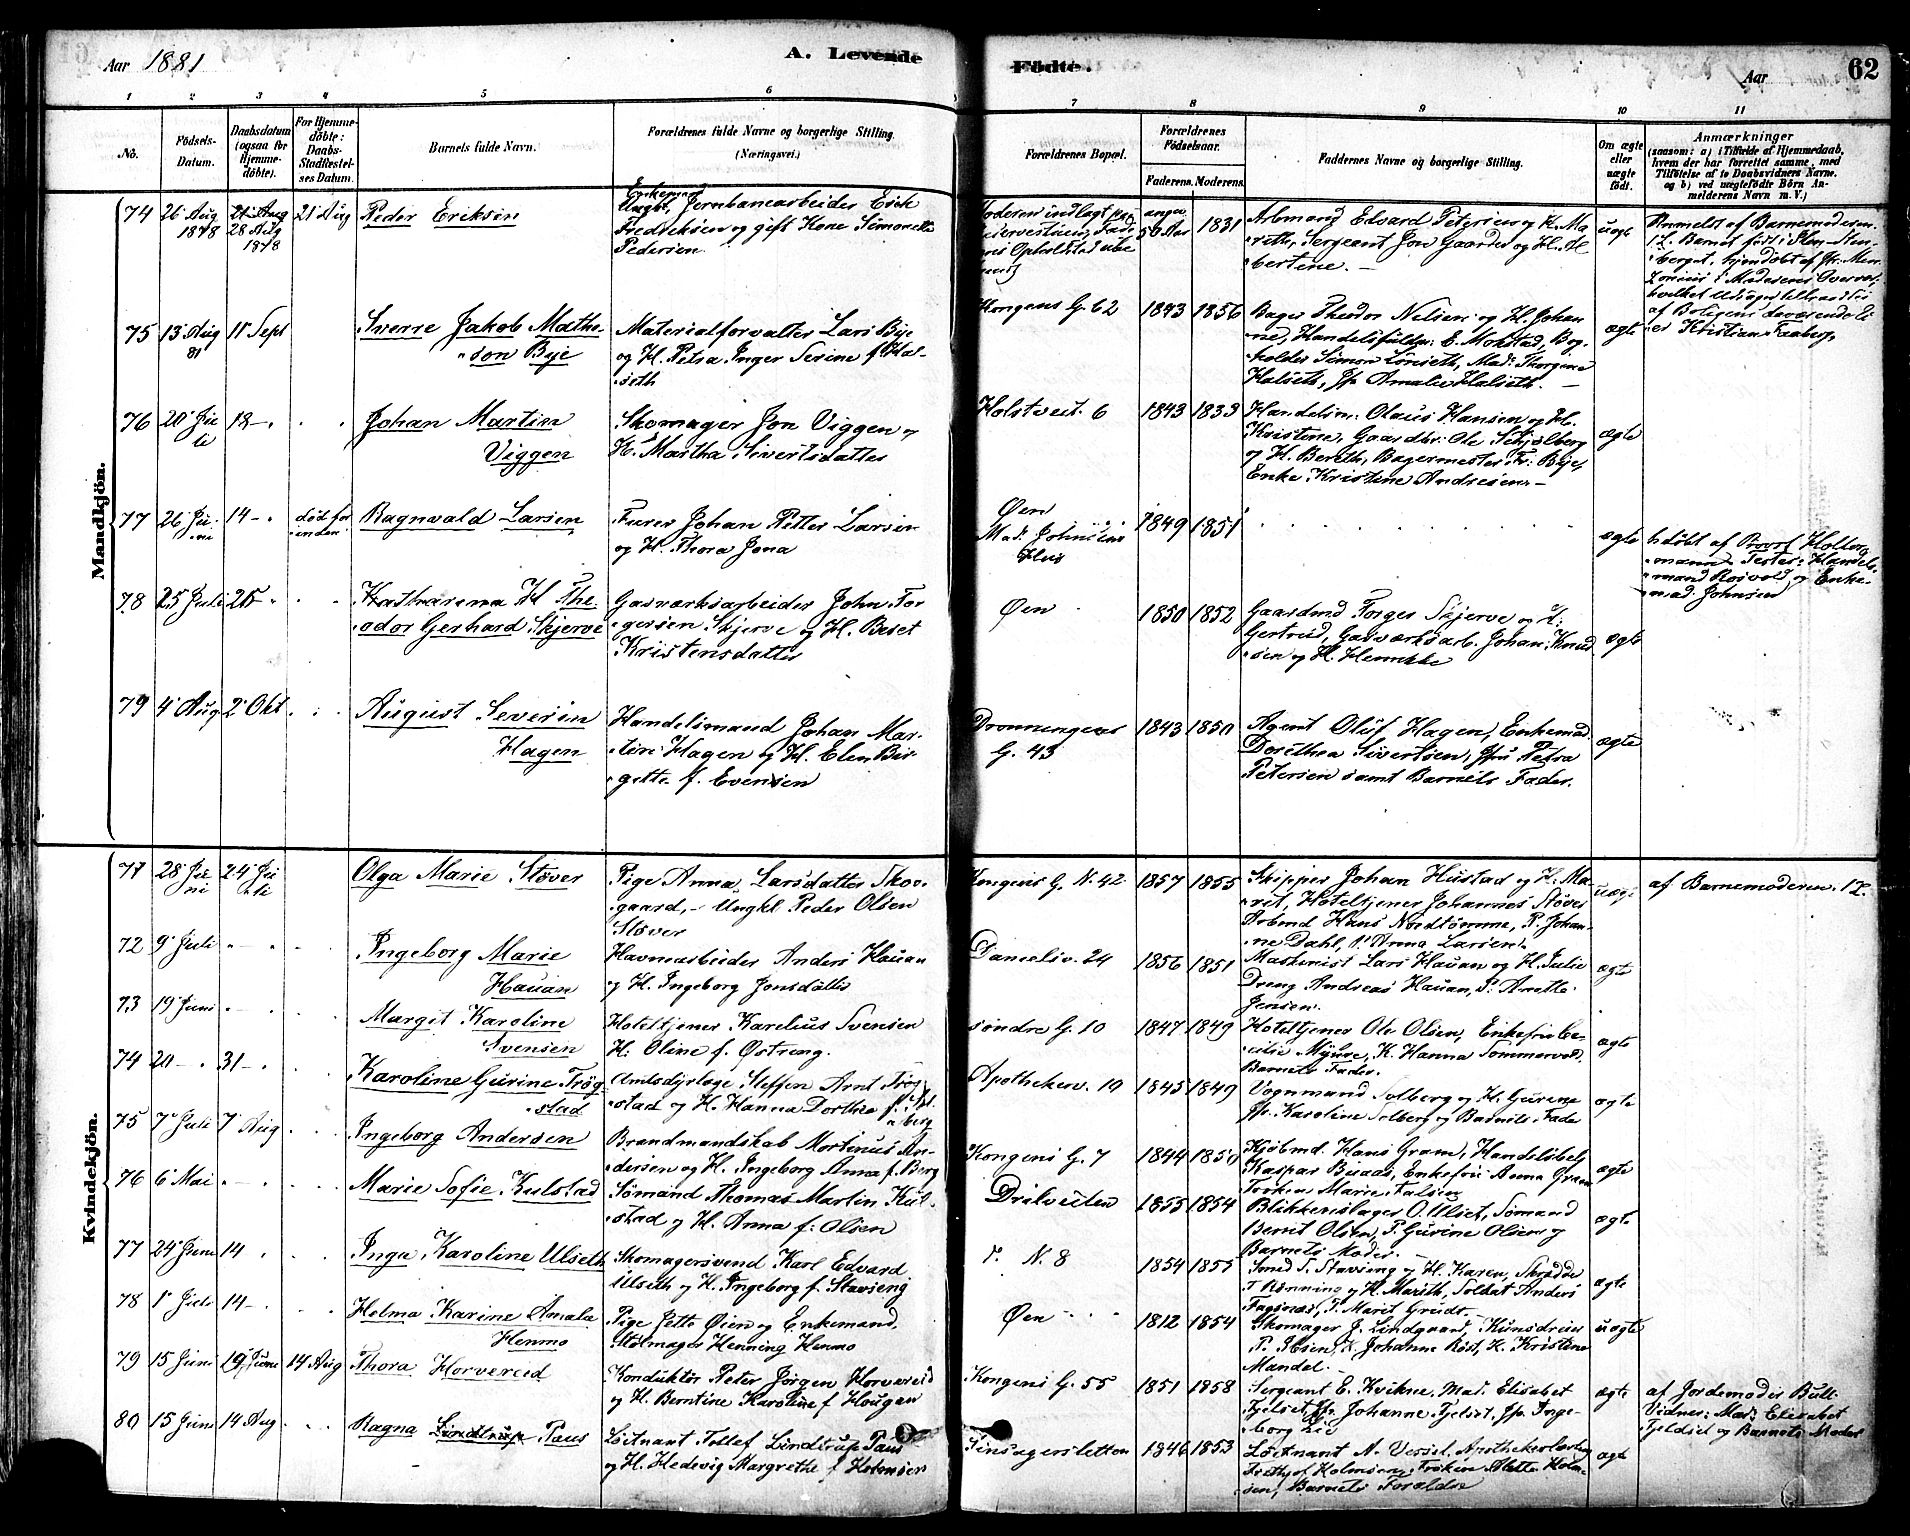 Aar 1881
A. Levende
Födte.
Aar
62
1 2 3 4 5 6 7 8 9 10 11
No.
Födsels-
Datum.
Daabsdatum
(ogsaa for
Hjemme-
döbte).
For Hjemme-
döbte:
Daabs-
Stadfæstel-
ses Datum.
Barnets fulde Navn.
Forældrenes fulde Navne og borgerlige Stilling.
(Næringsvei.)
Forældrenes Bopæl.
Forældrenes
Födselsaar.
Faderens. Moderens.
Faddernes Navne og borgerlige Stilling.
Om ægte
eller
uægte
født.
Anmærkninger
(saasom: a) i Tilfælde af Hjemmedaab,
hvem der har forrettet samme, med
Tilföielse af to Daabsvidners Navne.
og b) ved uægtefödte Börn An-
melderens Navn m. V.)
Mandkjön.
74 26 Aug 1878 28 Aug 1878 21 Aug
Peder Eriksen
Jernbanearbeider Erik
Fredriksen og gift Kone Simonette
Pedersen
1831
Arbmand Edvard Petersen og H. Ma-
reth, Sergeant Jon Gaarder og H. Al-
bertine.
uægte
Anmeldt af Barnemoderen
75 13 Aug 81 11 Sept
Sverre Jakob Mathe-
son Bye
Materialforvalter Lars Bye
og H. Petra Inger Serine f. Hal-
seth
Kongens G. 62 1843 1856
Bager Theodor Nelsen og H. Johan
ne, Handelsfuldm: E. Mokstad, Bog-
holder Simon Lönseth, Mad: Thorgine
Halseth, Jfr Amalie Halseth.
ægte
76 20 Juli 12 -
Johan Martin
Viggen
Skomager Jon Viggen og
H. Martha Sivertsdatter
Holstveit. 6 1843 1833
Handelsm: Olaus Hansen og H.
Kristine, Gaardbr: Ole Schjølberg
og H. Bereth, Bagermester Fr: Bye,
Enke Kristine Andresen
ægte
77 26 Juni 14 -
Ragnvald Larsen
Furer Johan Petter Larsen
og H. Thora Jona
Øen
Mad: Johnsens
Hus
1849 1851
ægte
hjdöbt af Provst Holterg
mann
Johnsen
78 25 Juli 25
Katharinus H The-
odor Gerhard Skjerve
Gasværksarbeider John Tor-
gersen Skjerve og H. Beret
Kristensdatter
Øen 1850 1852
Gaardmd Torger Skjerve og H:
Gertrud, Gasværksarb. Johan Knud
sen og H. Henrikke
ægte
79 4 Aug 2 Okt
August Severin
Hagen
Handelsmand Johan Mar-
tin Hagen og H. Elen Bir-
gitte f. Evensen
Dronningens
G. 43
1843 1850
Agent Oluf Hagen, Enkemad.
Dorethea Sivertsen, Jfr Petra
Petersen samt Barnets Fader.
ægte
Kvindekjön.
71 28 Juni 24 Juli
Olga Marie Støver
Pige Anna Larsdatter Skov-
gaard, - Ungkl Peder Olsen
Støver
Kongens G. N. 42 1857 1855
Skipper Johan Hustad og H. Ma-
rit, Hoteltjener Johannes Støver
Arbmd Hans Nordtømme, P. Johan-
ne Dahl, P. Anna Larsen
uægte
af Barnemoderen.
72 9 Juli
Ingeborg Marie
Hauan
Havnearbeider Anders Hauan
og H. Ingeborg Jonsdatter
24 1856 1851
Maskinist Lars Hauan og H. Julie
Dreng Andreas Hauan, P. Anette
Jensen.
ægte
73 19 Juni
Margit Karoline
Svensen
Hoteltjener Karelius Svensen
H. Oline f. Østreng.
Søndre G. 10 1847 1849
Hoteltjener Ole Olsen, Enkefru Ce-
cilie Myhre, K. Hanna Sommervold
Barnets Fader.
ægte
74 20 - 31 -
Karoline Gurine Trøg-
stad
Amtsdyrlæge Steffen Arnt Trøg
stad og H. Hanna Dorthea f. Sol-
berg
Apothekerv. 19 1845 1849
Vognmand Solberg og H. Gurine
Jfr. Karoline Solberg og Barnets Fader
ægte
75 7 Juli 7 Aug
Ingeborg Andersen
Brandmandskab Martinus An-
dersen og H. Ingeborg Anna f. Berg
Kongens G. 7 1844 1850
Kjøbmd. Hans Gram, Handelsbetj
Kaspar Buaas, Enkefru Anna Gram
Frøken Marie Falsen
ægte
76 6 Mai
Marie Sofie Kulstad
Sømand Thomas Martin Kul-
stad og H. Anna f: Olsen
Drilveiten 1855 1854
Blikkenslager O. Ulset, Sømand
Bernt Olsen, P. Gurine Olsen og
Barnets Moder.
ægte
77 24 Juni 14
Inga Karoline Ulseth
Skomagersvend Karl Edvard
Ulseth og H. Ingeborg f. Stavseng
N. 8 1854 1855
Smed T. Stavseng og H. Karen, Skrædder
T Rönning og H. Marith, Soldat Anders
Fagsnæs, P. Marit Grudt.
ægte
78 1 Juli 14 -
Helma Karine Amala
Henmo
Pige Jette Øien og Enkemand,
Stolmager Henning Henmo
Øen 1812 1854
Skomager J. Lindgaard, Kunstdreier
P. Ibsen, K. Johanne Röst, K. Kristine
Mandel.
uægte
79 15 Juni 19 Juni 14 Aug
Thora Horvereid
Konduktör Peter Jörgen Horvereid
og H. Berntine Karoline f Hougan
Kongens G. 55 1851 1858
Sergeant E. Kvikne, Mad. Elisabet
Fjelset, Jfr. Johanne Fjelset, Jfr. Inge-
borg Lie
ægte
af Jordemoder Bull
Vidner: Mad: Elisabet
Fjeldset og Barnets Moder
80 15 Juni 14 Aug
Ragna Lindtrup Paus
Löitnant Tollef Lindtrup Paus
og H. Hedevig Margrethe f Holmsen
Finsagersletten 1846 1853
Löitnant N. Vessel, Apothekerlærling
Frithjof Holmsen, Frøken Alette Holm-
sen, Barnets Forældre
ægte